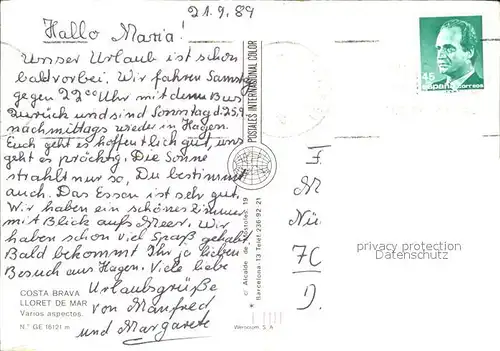 21.9.89
Hallo Maria!
Unser Urlaub ist schon
bald vorbei. Wir fahren Samstag
gegen 22⁰⁰ Uhr mit dem Bus
zurück und sind Sonntag d. 25.9
nachmittags wieder in Hagen.
Euch geht es hoffentlich gut, uns
geht es prächtig. Die Sonne
strahlt nur so, Du bestimmt
auch. Das Essen ist sehr gut,
Wir haben ein schönes Zimmer
mit Blick aufs Meer. Wir
haben schon viel Spaß gehabt
Bald bekommt Ihr ja lieben
Besuch aus Hagen. Viele liebe
Urlaubsgrüße
von Manfred
und Margarete
COSTA BRAVA
LLORET DE MAR
Varios aspectos.
N.° GE 16121 m
POSTALES INTERNACIONAL COLOR
Barcelona-13 Telef. 236-92-21
Werocum, S. A.
45
España correos
F.
M
Nü
7C
D.
privacy protection
Datenschutz